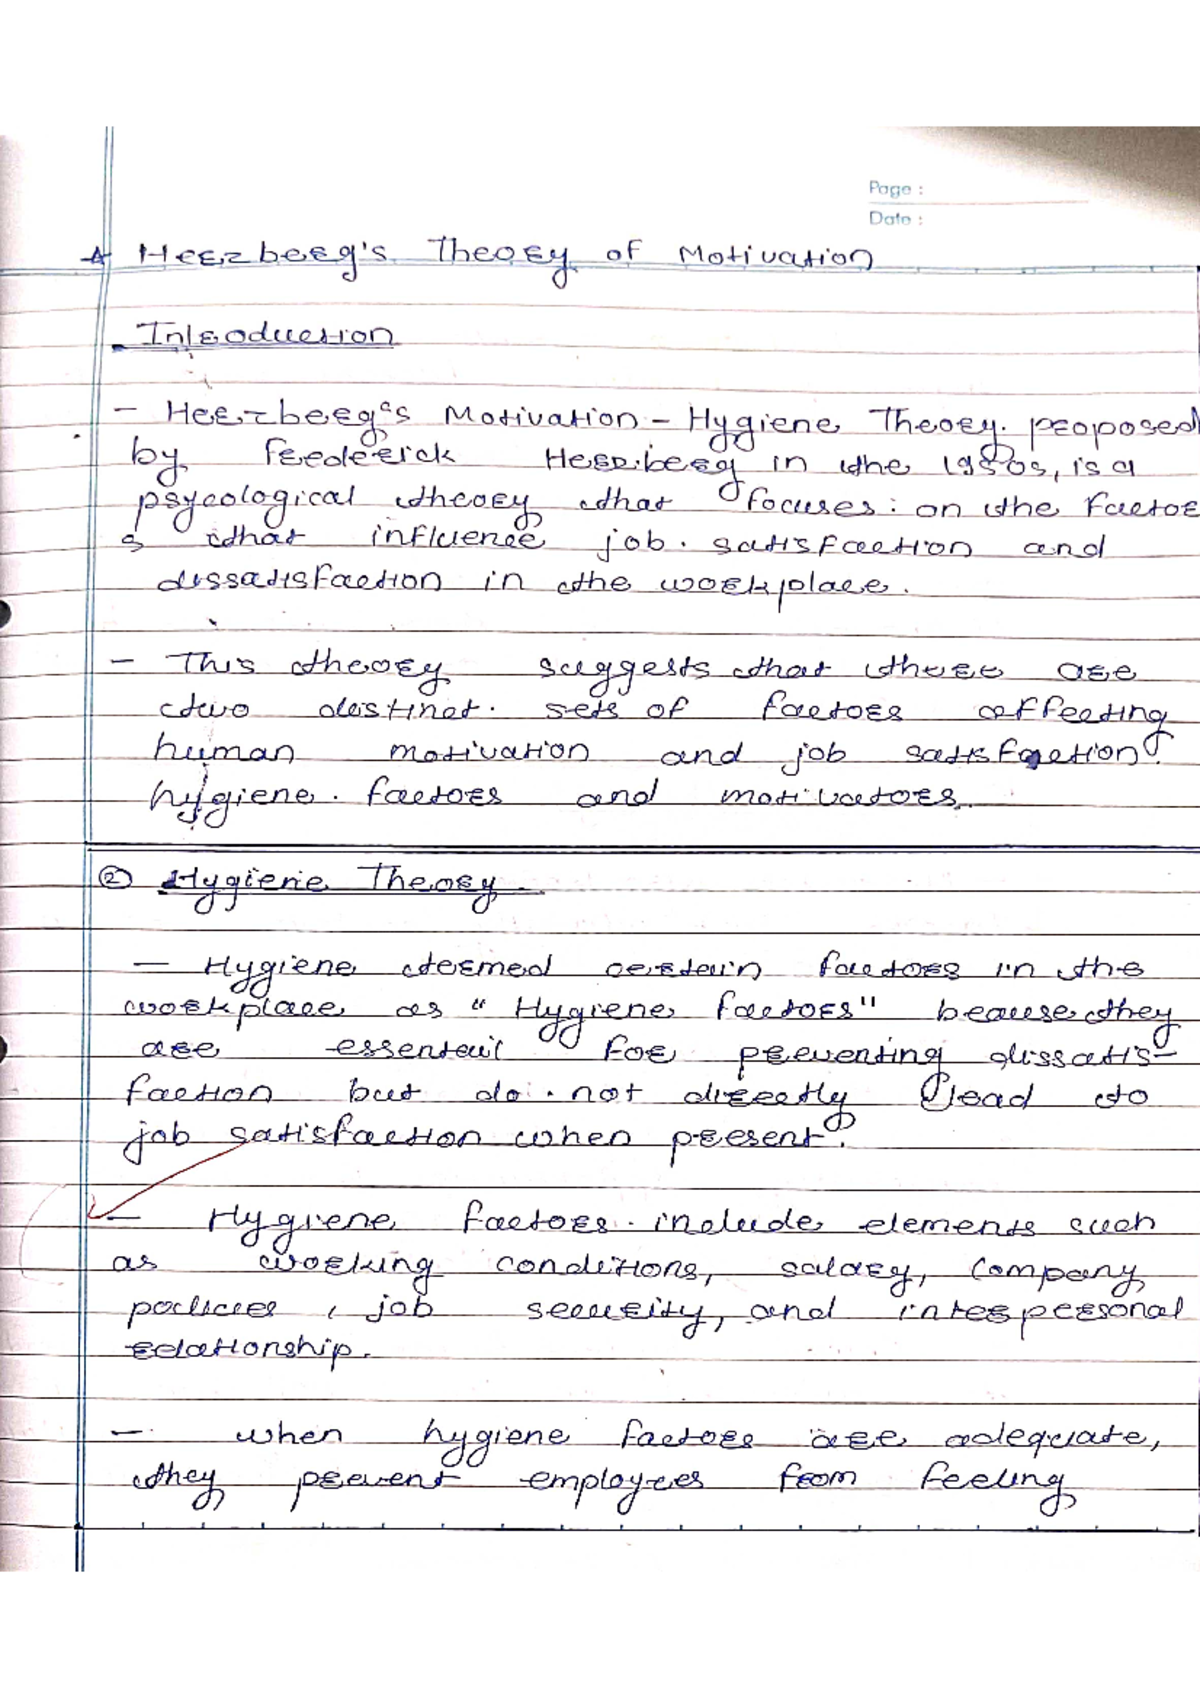 Page :
Date :
Herzberg's Theory of Motivation
Introduction
- Herzberg's Motivation - Hygiene Theory. proposed
by Frederick Herzberg in the 1950s, is a
psycological theory that focuses on the Factor
s that influence job satisfaction and
dissatisfaction in the workplace.
- This theory suggests that there are
two distinct sets of factors affecting
human motivation and job satisfaction:
hygiene factors and motivators.
② Hygiene Theory
- Hygiene termed certain factors in the
workplace as "Hygiene factors" because they
are essential for preventing dissatis-
faction but do not directly lead to
job satisfaction when present.
- Hygiene factors include elements such
as working conditions, salary, Company
policies, job security, and interpersonal
relationship.
- when hygiene factors are adequate,
they prevent employees from feeling